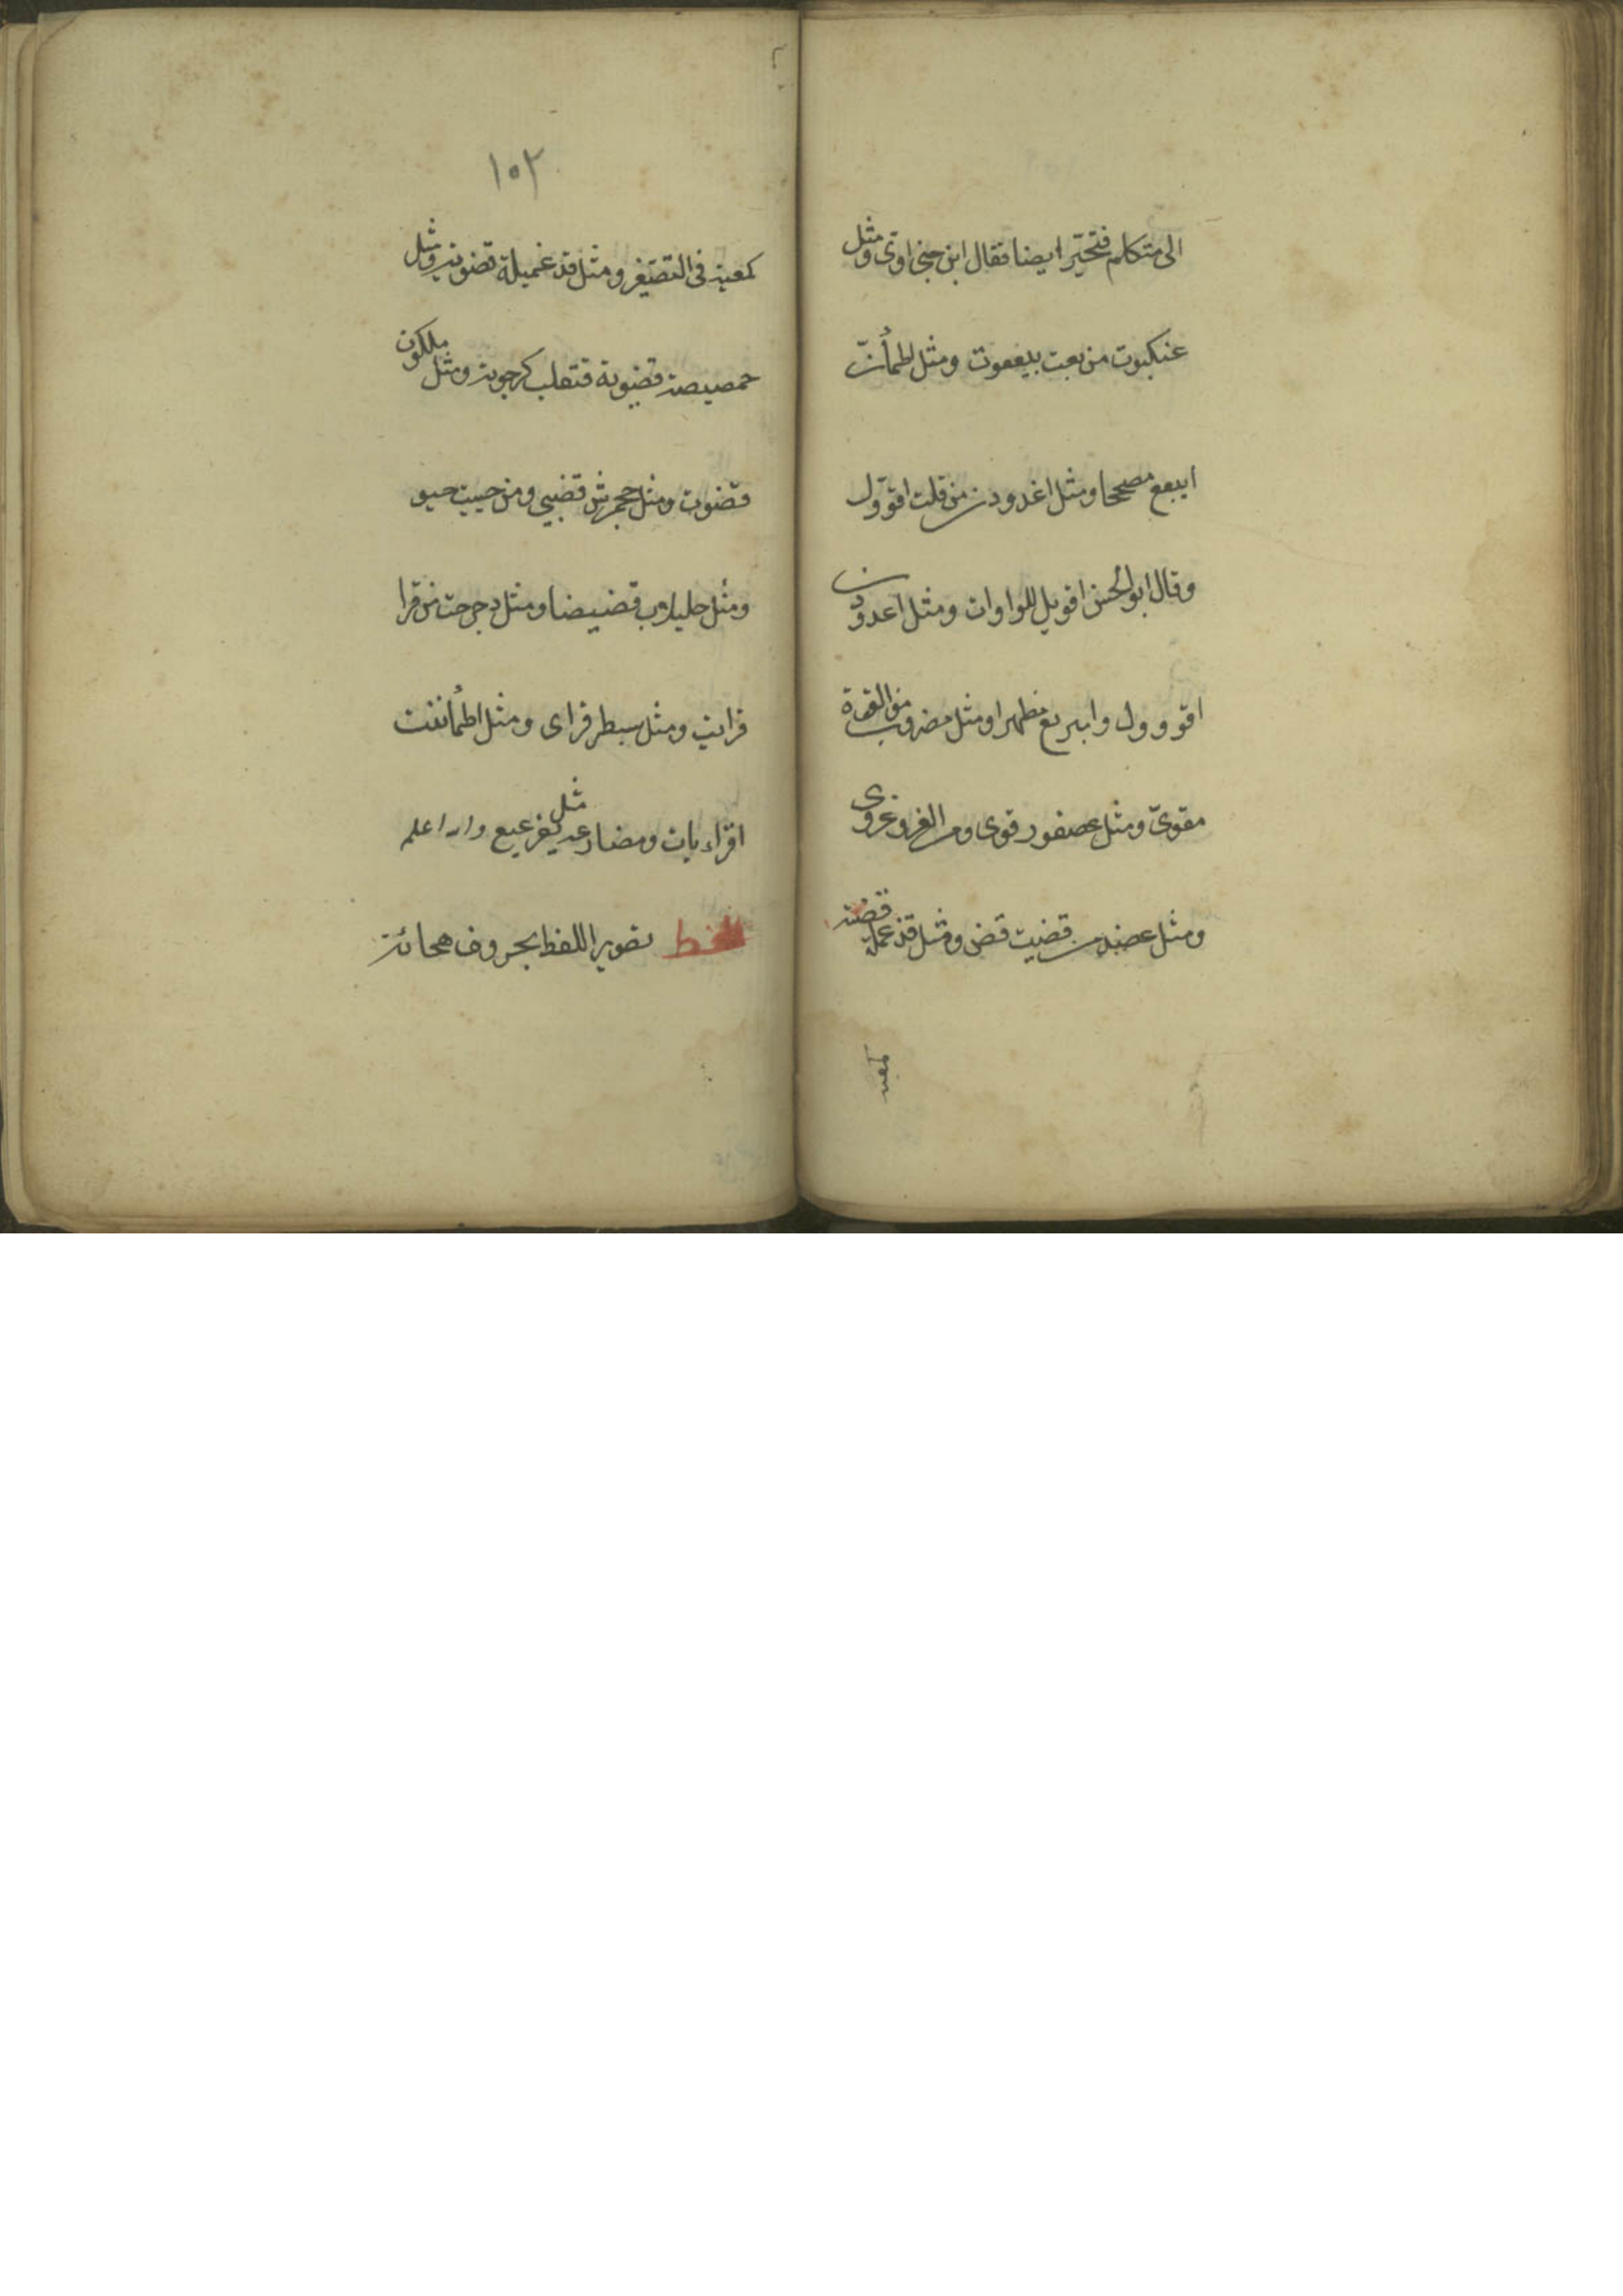 الى متكلم فتحيّر ايضا فقال ابن جنى اوىّ ومثل
عنكبوت من بعت بيععوت ومثل اطمأنّ
ابيعع مصححا ومثل اغدودن من قلت اقووّل
وقال ابو الحسن اقويل للواوات ومثل اغدودن
اقووول وابيويع مظهرا ومثل مضروب من القوة
مقوىّ ومثل عصفور قوى ومن الغزو غزوى
ومثل عضد من قضيت قض ومثل قذعملة قضية
كمعية
١٥٢
كمعية فى التصغير ومثل قذعميلة قضوية ومثل
حمصيصة قضوية فتقلب كرحوية ومثل ملكوت
قضوت ومثل جحمرش قضيى ومن حييت حيو
ومثل حلبلاب قضيضا ومثل دحرجت من قرا
قرايت ومثل سبطر قراى ومثل اطمأننت
اقراءيات ومضارعه مثل يقرعيع والله اعلم
الخط تصوير اللفظ بحروف هجائه